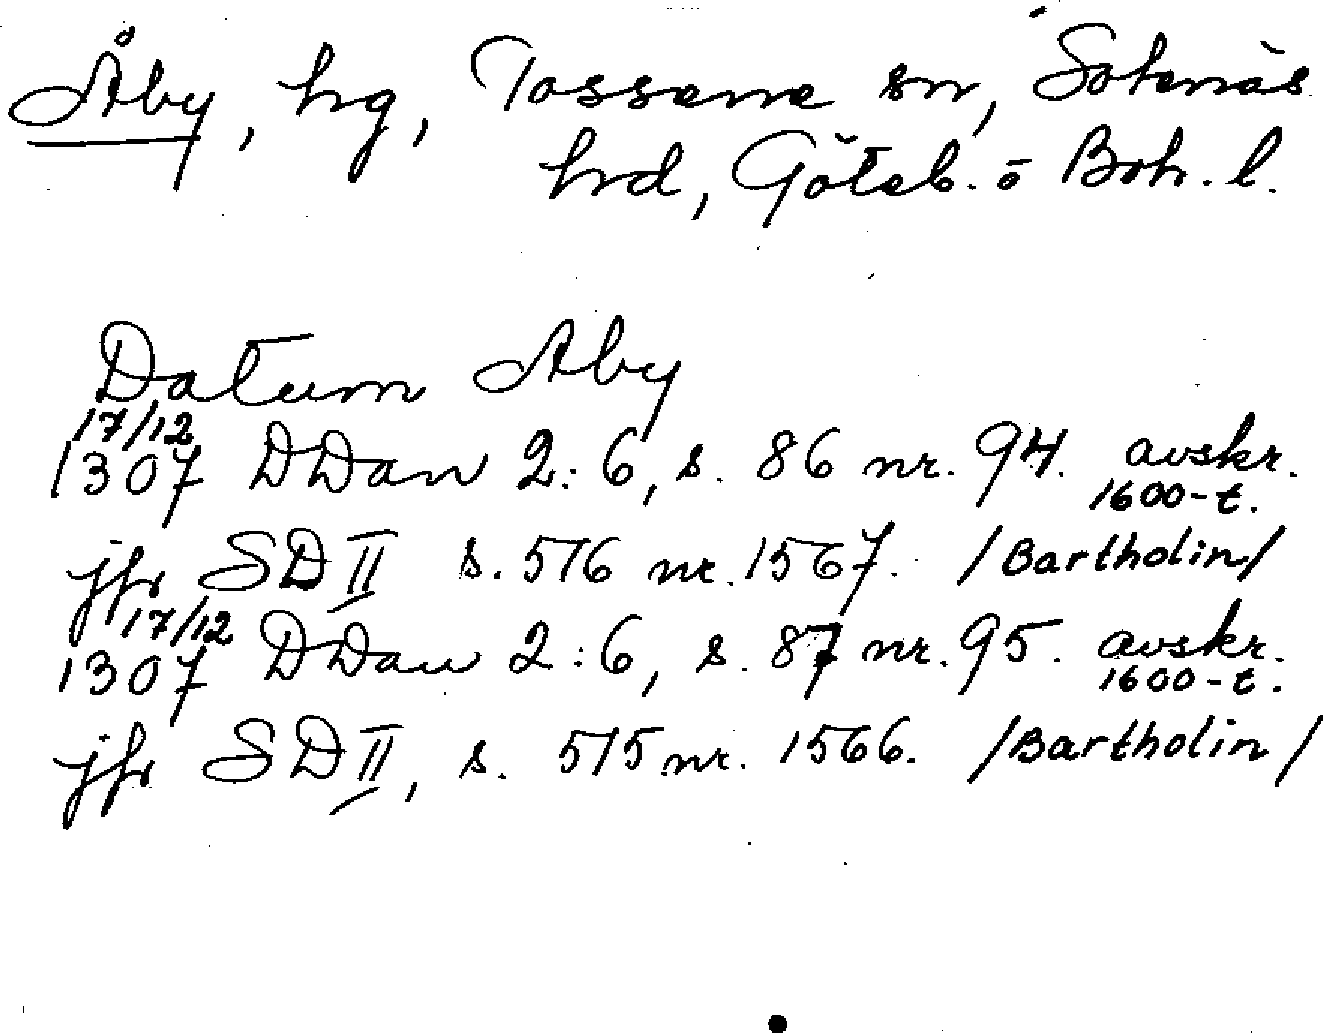 Åby, hg, Tossene sn, Sotenäs
hrd, Göteb. o Boh. l.
Datum Aby
17/12
1307 DDan 2:6, s. 86 nr. 94. avskr.
1600-t.
jfr SD II s. 576 nr. 1567. /Bartholin/
17/12
1307 DDan 2:6, s. 87 nr. 95. avskr.
1600-t.
jfr SD II, s. 575 nr. 1566. /Bartholin/